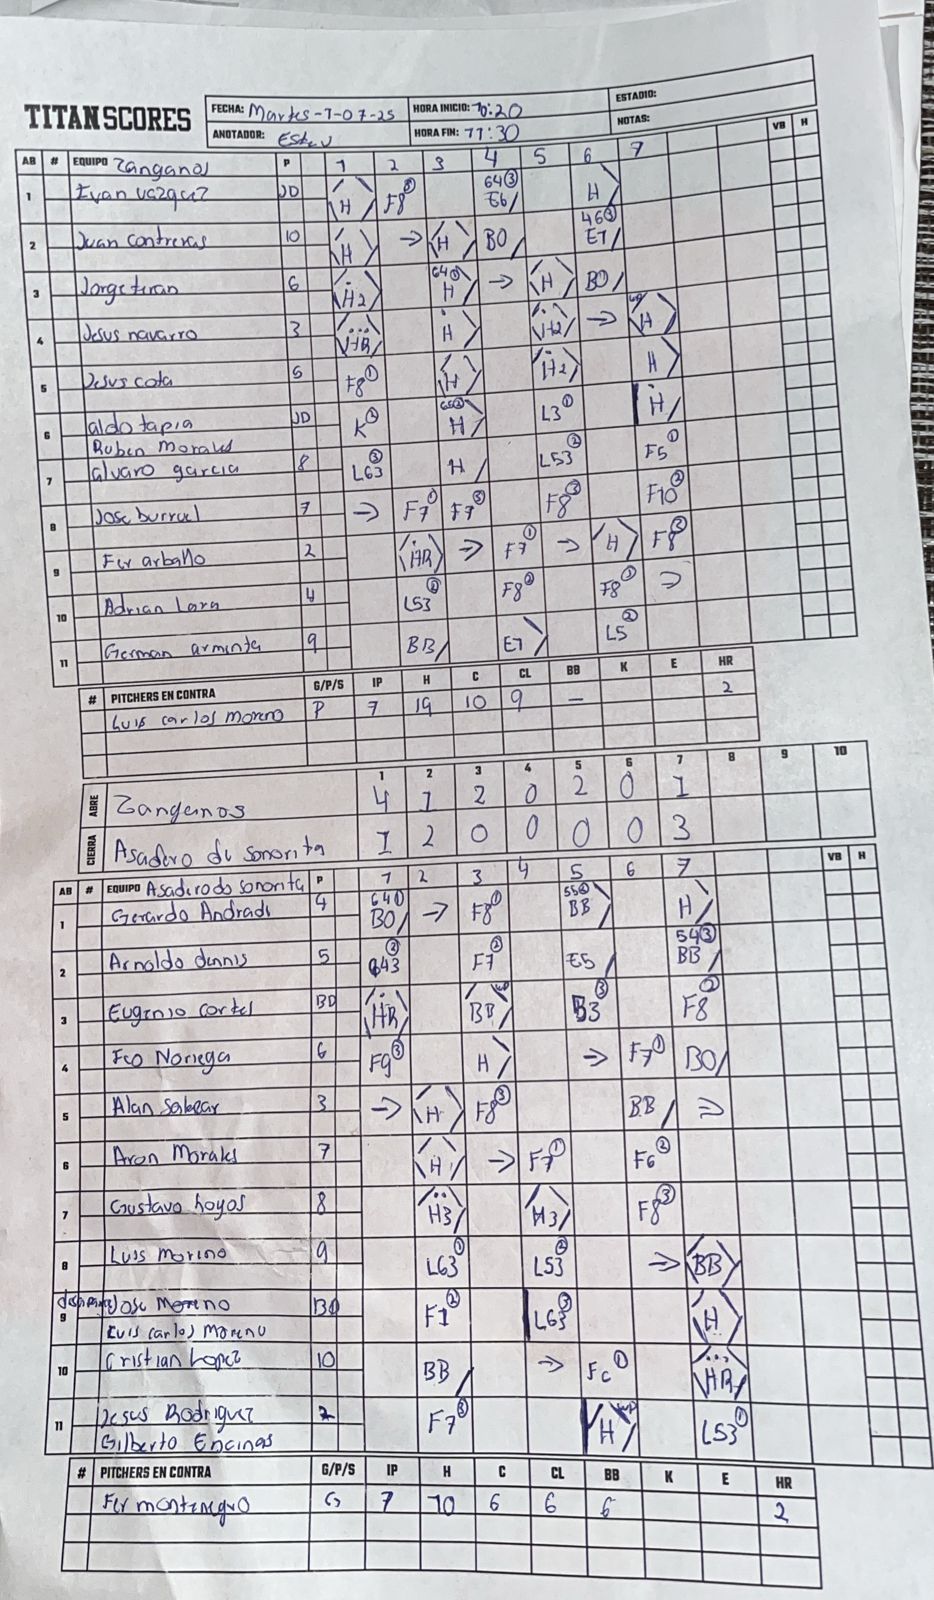 TITAN SCORES
FECHA: Martes-1-07-25 HORA INICIO: 10:20 ESTADIO:
ANOTADOR: HORA FIN: 11:30 NOTAS:
AB # EQUIPO Zanganos P 1 2 3 4 5 6 7 VB H
1 Ivan vazquez JD H F8③ 64③ E6 H
2 Juan contreras 10 H → H BO 46③ E7
3 Jorge teran 6 H2 64① H → H BO
4 Jesus navarro 3 HR H H2 → H
5 Jesus cota 5 F8① H H2 H
6 aldo tapia JD K② H L3① H
Ruben Morales
7 alvaro garcia 8 L63③ H L53② F5①
8 Jose burruel 7 → F7① F7③ F8③ F10②
9 Fer arballo 2 HR → F7① → H F8③
10 Adrian Lara 4 L53② F8② F8① →
11 German armenta 9 BB E7 L5②
# PITCHERS EN CONTRA G/P/S IP H C CL BB K E HR
Luis carlos moreno P 7 19 10 9 - 2
1 2 3 4 5 6 7 8 9 10
ABRE Zanganos 4 1 2 0 2 0 1
CIERRA Asadero de sonorita 1 2 0 0 0 0 3
AB # EQUIPO Asadero do sonorita P 1 2 3 4 5 6 7 VB H
1 Gerardo Andrade 4 64① BO → F8① BB H
2 Arnoldo dennis 5 643② F7② E5 54③ BB
3 Eugenio cortes BD HR BB B3③ F8②
4 Fco Noriega 6 F9③ H → F7① BO
5 Alan 3 → H F8③ BB →
6 Aron Morales 7 H → F7① F6②
7 Gustavo hoyos 8 H3 H3 F8③
8 Luis moreno 9 L63① L53② → BB
9 Jose Moreno BD F1② L63③ H
Luis carlos moreno
10 Cristian Lopez 10 BB → Fc① HR
11 Jesus Rodriguez 2 F7③ H L53①
Gilberto Encinas
# PITCHERS EN CONTRA G/P/S IP H C CL BB K E HR
Fer montenegro G 7 10 6 6 6 2